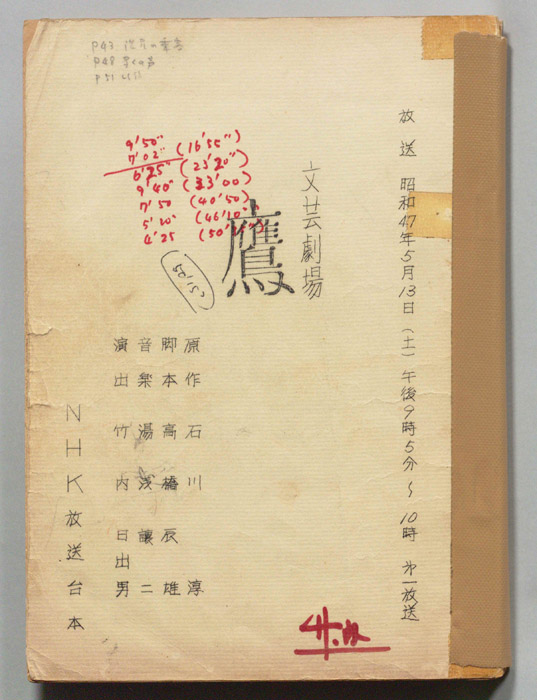 放送 昭和47年5月13日(土)午後9時5分～10時 第一放送
文芸劇場
鷹
原作 石川 淳
脚本 高橋辰雄
音楽 湯浅譲二
演出 竹内日出男
NHK放送台本
9'50"
7'02" (16'55")
6'25" (23'20")
9'40" (33'00)
7'50 (40'50)
(46'10")
4'25